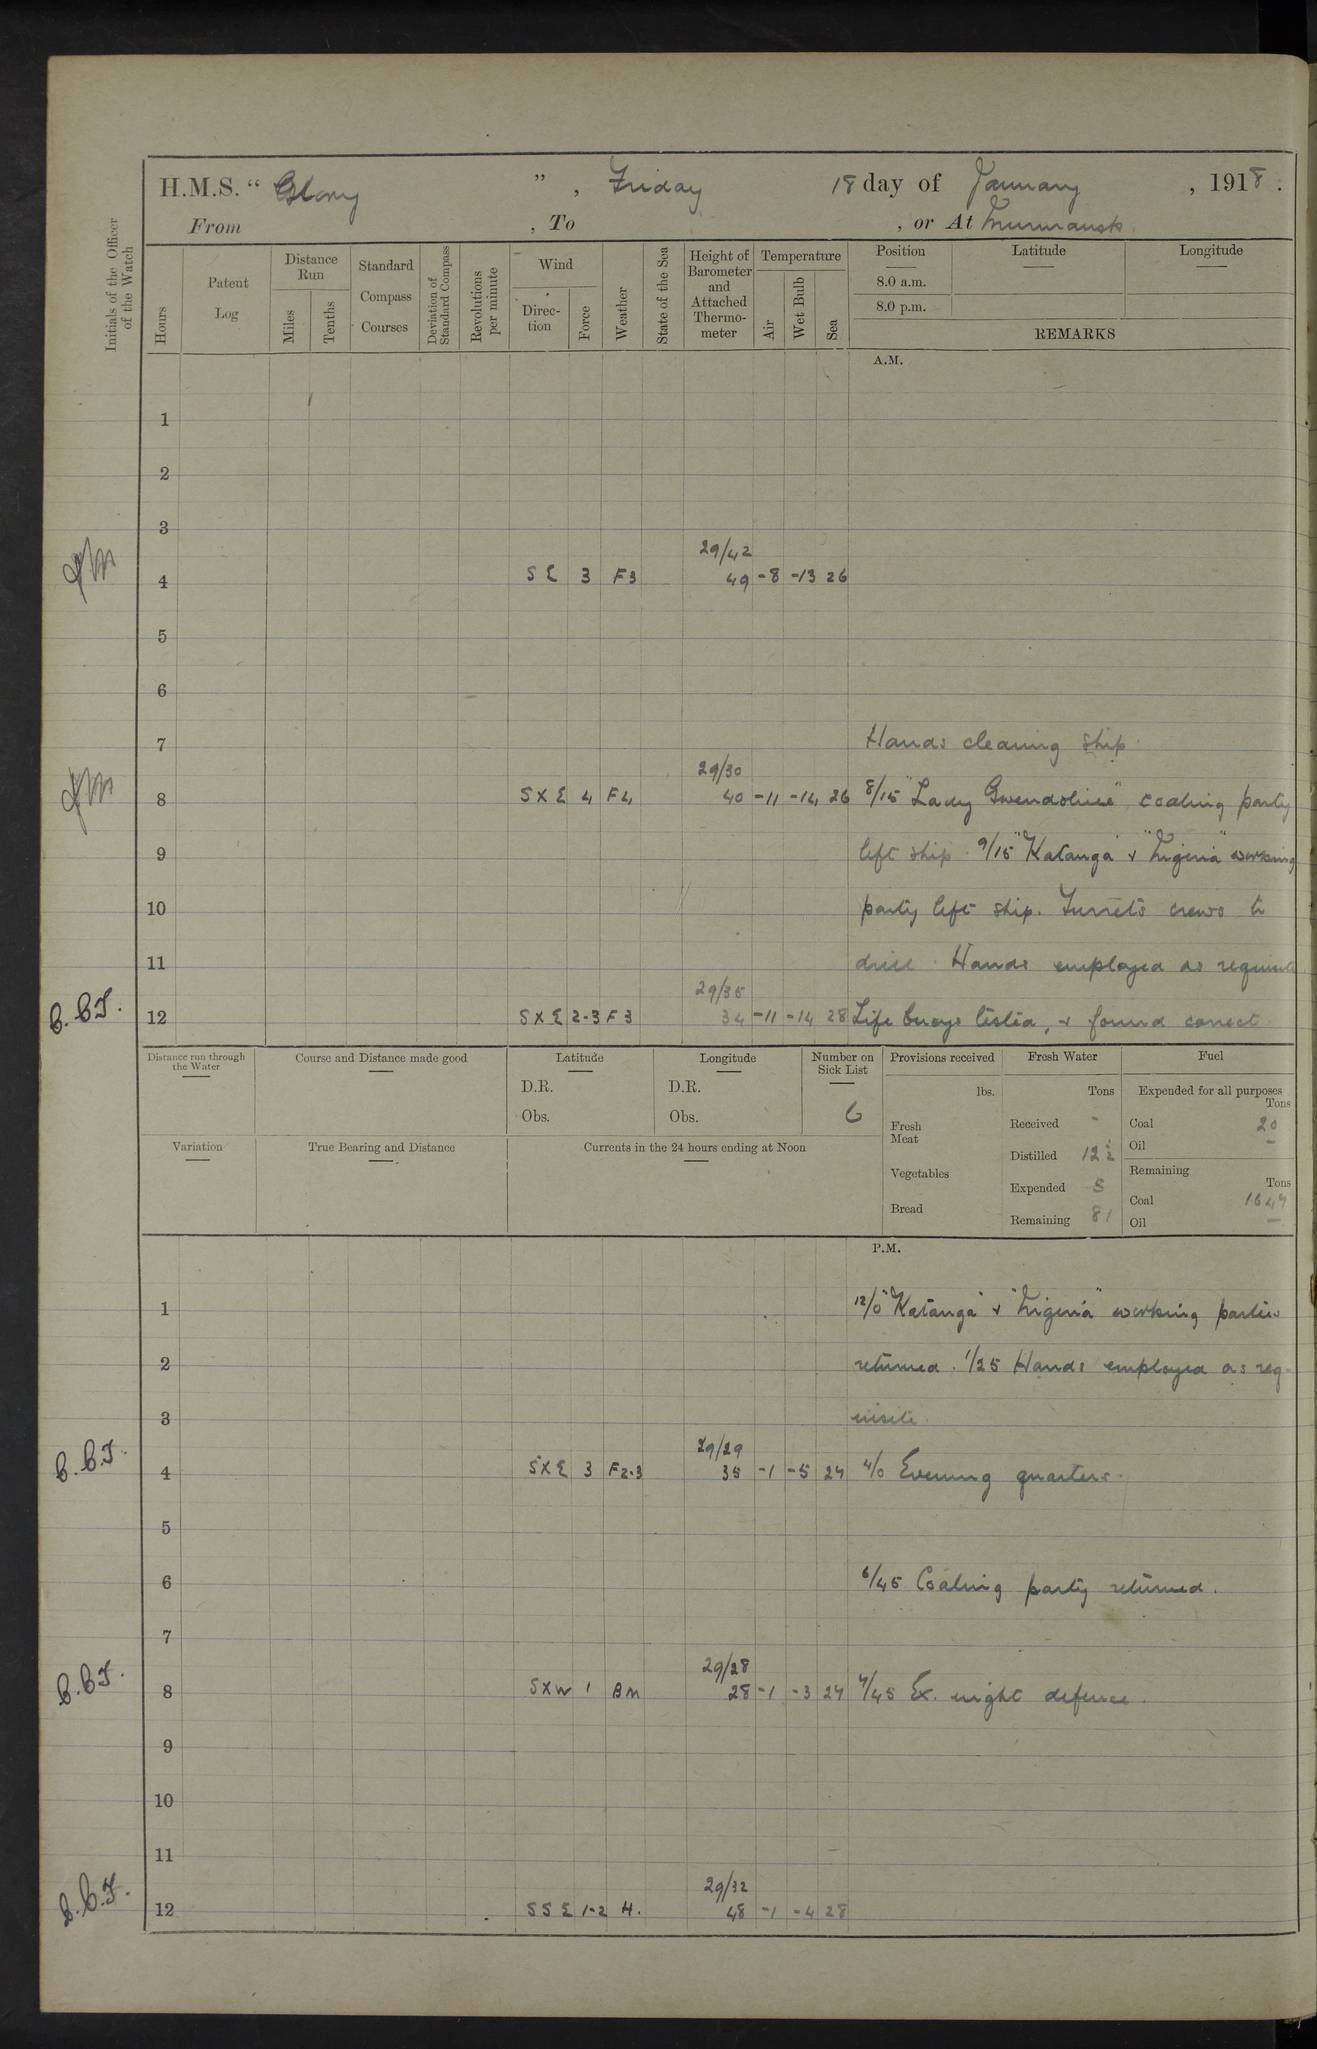 H.M.S. “ Glory ” , Friday 18 day of January , 1918 .
From , To , or At Murmansk
Initials of the Officer of the Watch
Hours
Patent Log
Distance Run
Miles
Tenths
Standard Compass Courses
Deviation of Standard Compass
Revolutions per minute
Wind
Direc-tion
Force
Weather
State of the Sea
Height of Barometer and Attached Thermo-meter
Temperature
Air
Wet Bulb
Sea
Position
8.0 a.m.
8.0 p.m.
Latitude
Longitude
REMARKS
A.M.
1
2
3
29/42
4 S E 3 F3 49 -8 -13 26
5
6
7 Hands cleaning ship.
29/30
8 S X E 4 F4 40 -11 -14 26 8/15 "Lady Gwendoline" coaling party
9 left ship. 9/15 "Katanga" + "Nigeria" working
10 party left ship. Turrets crews to
11 drill. Hands employed as requisite
29/35
B.B.J. 12 S X E 2-3 F3 34 -11 -14 28 Life buoys tested, + found correct
Distance run through the Water
Course and Distance made good
Latitude
D.R.
Obs.
Longitude
D.R.
Obs.
Number on Sick List
6
Variation
True Bearing and Distance
Currents in the 24 hours ending at Noon
Provisions received
lbs.
Fresh Meat
Vegetables
Bread
Fresh Water
Tons
Received -
Distilled 12½
Expended 5
Remaining 81
Fuel
Expended for all purposes
Tons
Coal 20
Oil —
Remaining
Tons
Coal 1647
Oil —
P.M.
1 12/0 "Katanga" + "Nigeria" working parties
2 returned. 1/25 Hands employed as req-
3 uisite.
29/29
B.B.J. 4 S X E 3 F2-3 35 -1 -5 27 4/0 Evening quarters.
5
6 6/45 Coaling party returned.
7
29/28
B.B.J. 8 S X W 1 BM 28 -1 -3 27 7/45 Ex. night defence.
9
10
11
29/32
B.B.J. 12 S S E 1-2 H. 48 -1 -4 28